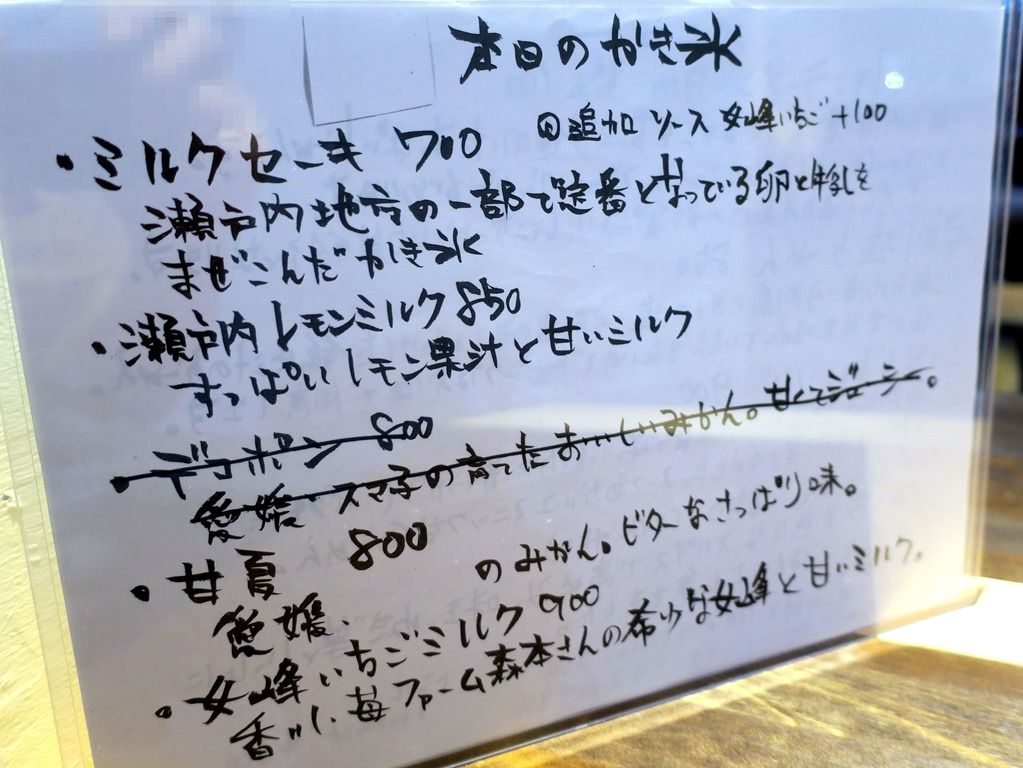 本日のかき氷
追加ソース 女峰いちご+100
・ミルクセーキ 700
瀬戸内地方の一部で定番となっている卵と牛乳を
まぜこんだかき氷
・瀬戸内レモンミルク 850
すっぱいレモン果汁と甘いミルク
・デコポン 800
愛媛・スマ子の育てたおいしいみかん。甘くてジューシー。
・甘夏 800
愛媛、のみかん。ビターなさっぱり味。
・女峰いちごミルク 900
香川、苺ファーム森本さんの希少な女峰と甘いミルク。